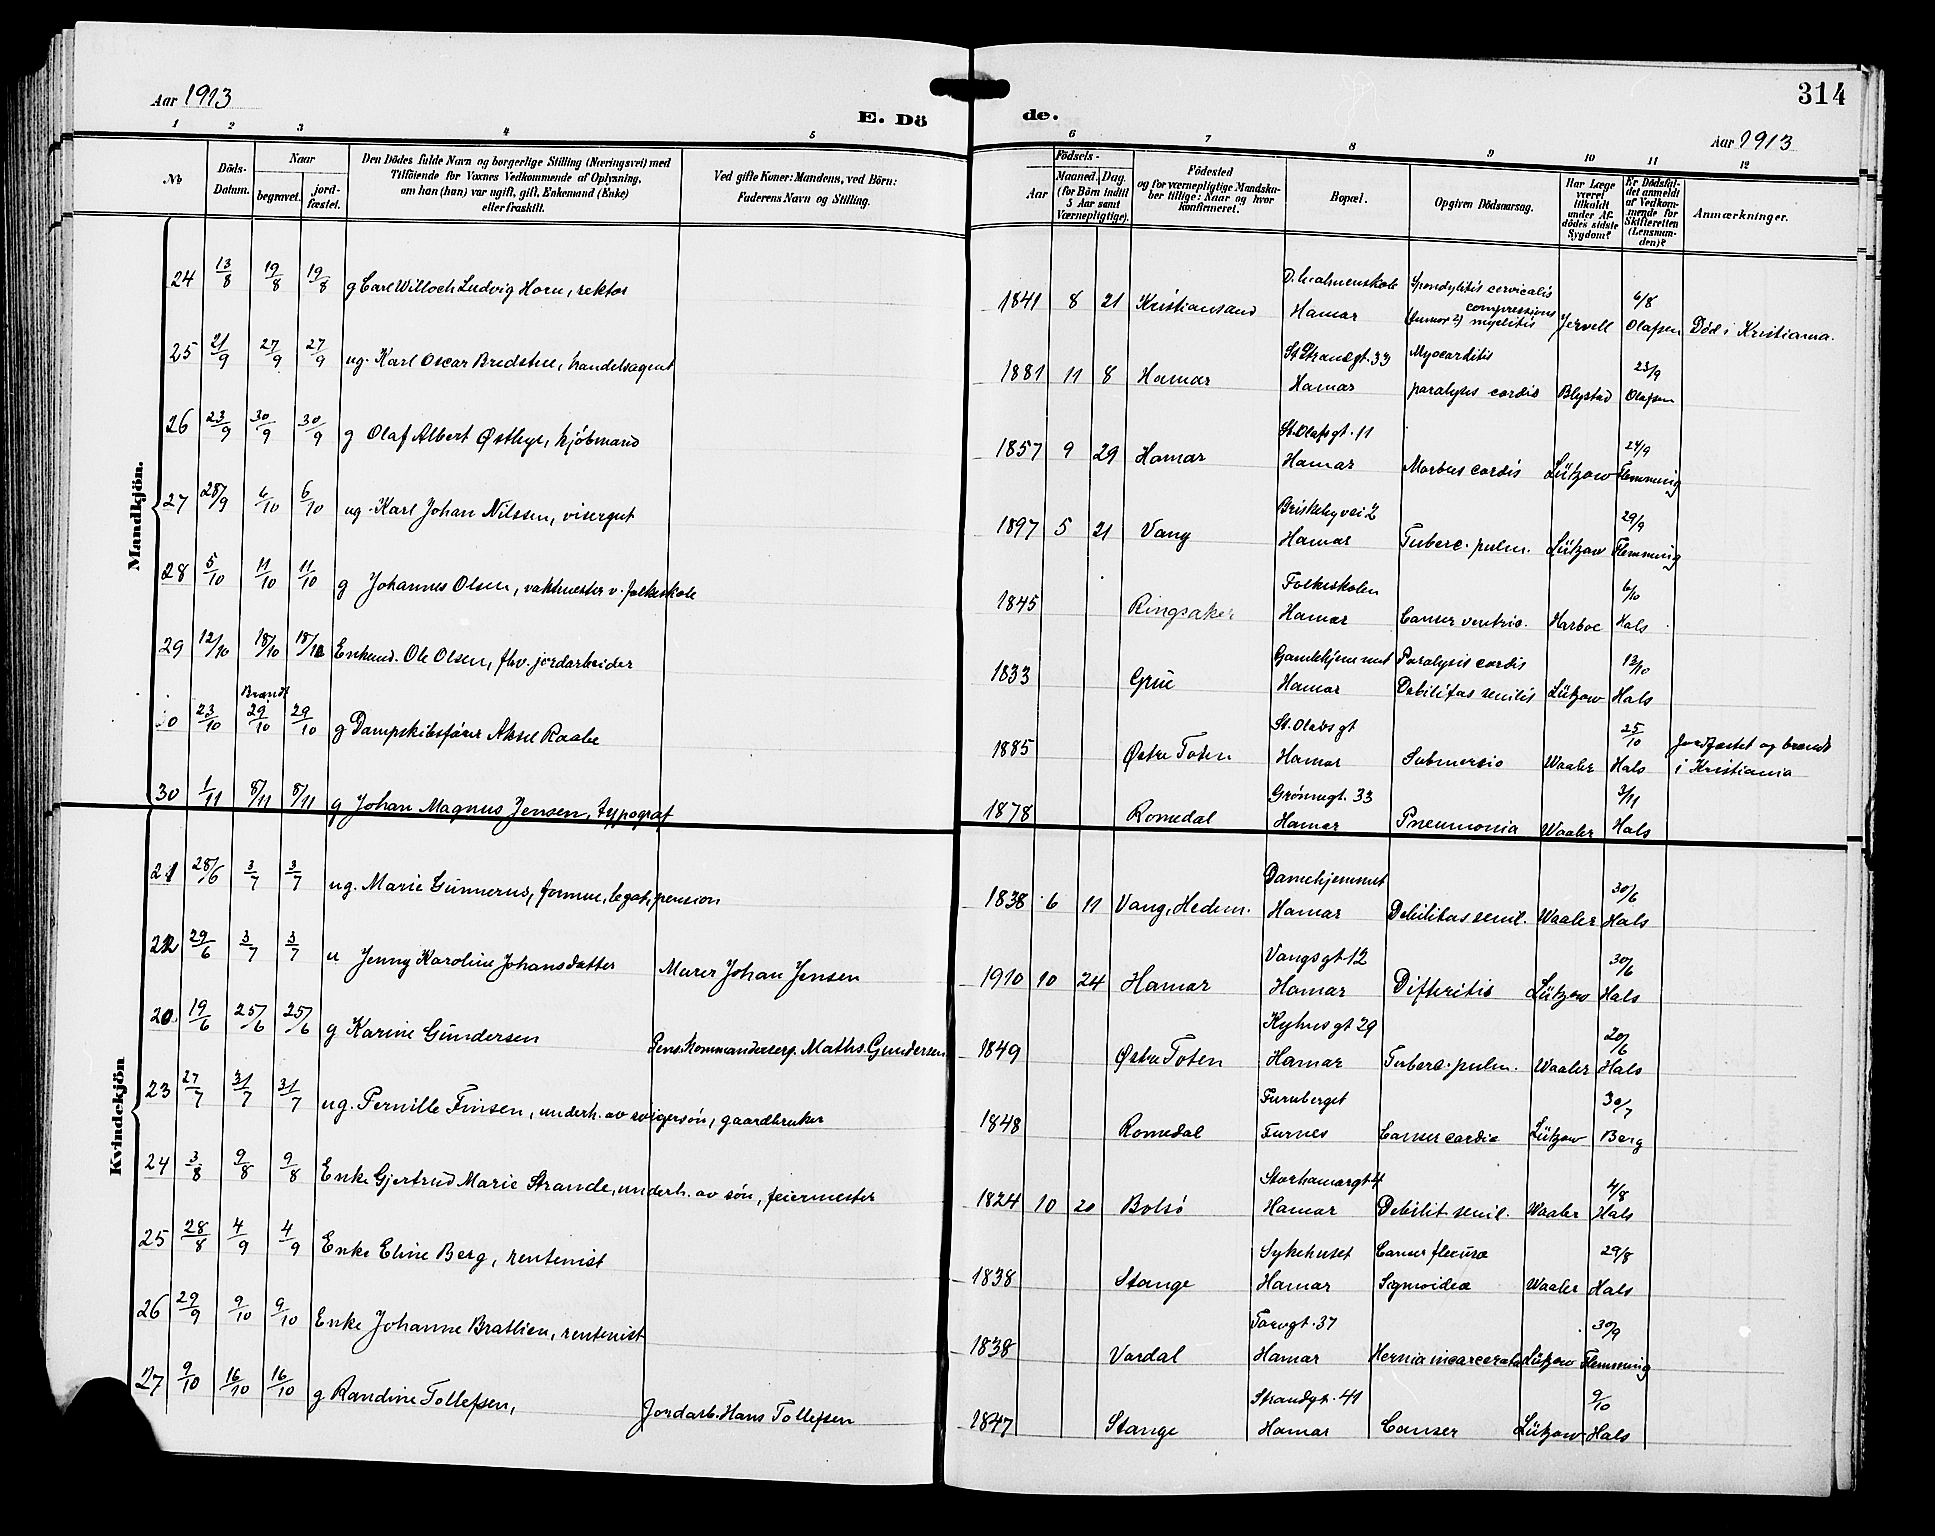 314
Aar 1913
E. Dö
de.
Aar 1913
1 2 3 4 5 6 7 8 9 10 11 12
No
Döds-Datum.
Naar
begravet.
jord-fæstet.
Den Dödes fulde Navn og borgerlige Stilling (Næringsvei) med
Tilföiende for Voxnes Vedkommende af Oplysning,
om han (hun) var ugift, gift, Enkemand (Enke)
eller fraskilt.
Ved gifte Koner: Mandens, ved Börn:
Faderens Navn og Stilling.
Födsels-
Aar
Maaned. Dag.
(for Börn indtil
5 Aar samt
Værnepligtige).
Födested
og for værnepligtige Mandska-
ber tillige: Naar og hvor
konfirmeret.
Bopæl.
Opgiven Dödsaarsag.
Har Læge
været
tilkaldt
under Af-
dödes sidste
Sygdom?
Er Dödsfal-
det anmeldt
af Vedkom-
mende for
Skifteretten
(Lensman-
den)?
Anmærkninger.
Mandkjön.
24 13/8 19/8 19/8 g Carl Willoch Ludvig Horn, rektor 1841 8 21 Kristiansand Hamar Spondylitis cervicalis
(tumor?) compressions
myelitis Jervell 6/8 Olafsen Död i Kristiania.
25 21/9 27/9 27/9 ug. Karl Oscar Bredstue, handelsagent 1881 11 8 Hamar St. Strandgt. 33
Hamar Myocarditis
paralysis cordis Blystad 23/9 Olafsen
26 23/9 30/9 30/9 g Olaf Albert Østbye, kjöbmand 1857 9 29 Hamar St. Olafsgt. 11
Hamar Morbus cordis Lützow 24/9 Flemming
27 28/9 6/10 6/10 ug. Karl Johan Nilssen, visergut 1897 5 21 Vang Briskebyvei 2
Hamar Tuberc. pulm. Lützow 29/9 Flemming
28 5/10 11/10 11/10 g Johannes Olsen, vaktmester v. folkeskole 1845 Ringsaker Folkeskolen
Hamar Cancer ventric. Harboe 6/10 Hals
29 12/10 18/10 18/10 Enkemd. Ole Olsen, fhv. jordarbeider 1833 Grue Gamlehjemmet
Hamar Paralysis cordis
Debilitas senilis Lützow 13/10 Hals
30 23/10 Brændt 29/10 29/10 g Dampskibsfører Aksel Raabe 1885 Østre Toten St. Olavsgt
Hamar Submersio Waaler 25/10 Hals Jordfæstet og brændt
i Kristiania
30 1/11 8/11 8/11 g Johan Magnus Jensen, typograf 1878 Romedal Grönnegt. 33
Hamar Pneumonia Waaler 3/11 Hals
Kvindekjön
21 28/6 3/7 3/7 ug. Marie Gunnerus, formue, legat, pension 1838 6 11 Vang, Hedem. Damehjemmet
Hamar Debilitas senil. Waaler 30/6 Hals
22 29/6 3/7 3/7 u Jenny Karoline Johansdatter Murer Johan Jensen 1910 10 24 Hamar Vangsgt 12
Hamar Difteritis Lützow 30/6 Hals
20 19/6 25/6 25/6 g Karine Gundersen Pens. Kommandersersj. Maths. Gundersen 1849 Østre Toten Kyhnsgt 29
Hamar Tuberc. pulm. Waaler 20/6 Hals
23 27/7 31/7 31/7 ug. Pernille Finsen, underh. av svigersøn, gaardbruker 1848 Romedal Furuberget
Furnes Cancer cardia Lützow 30/7 Berg
24 3/8 9/8 9/8 Enke Gjertrud Marie Strande, underh. av søn, feiermester 1824 10 20 Bolsö Storhamargt 4
Hamar Debilit senil. Waaler 4/8 Hals
25 28/8 4/9 4/9 Enke Eline Berg, rentenist 1838 Stange Sykehuset
Hamar Cancer flexura
Sigmoidea Waaler 29/8 Hals
26 29/9 9/10 9/10 Enke Johanne Bratlien, rentenist 1838 Vardal Torvgt. 37
Hamar Hernia incarcerata Lützow 30/9 Flemming
27 9/10 16/10 16/10 g Randine Tollefsen, Jordarb. Hans Tollefsen 1847 Stange Strandgt. 41
Hamar Cancer Lützow 9/10 Hals